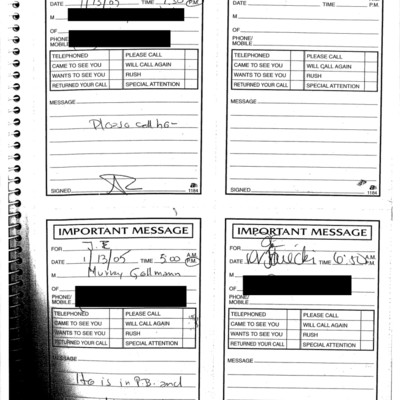 DATE 1/13/05 TIME 1:30 A.M. P.M.
M
OF
PHONE/
MOBILE
TELEPHONED PLEASE CALL
CAME TO SEE YOU WILL CALL AGAIN
WANTS TO SEE YOU RUSH
RETURNED YOUR CALL SPECIAL ATTENTION
MESSAGE
Please call her
SIGNED 1184
DATE TIME P.M.
M
OF
PHONE/
MOBILE
TELEPHONED PLEASE CALL
CAME TO SEE YOU WILL CALL AGAIN
WANTS TO SEE YOU RUSH
RETURNED YOUR CALL SPECIAL ATTENTION
MESSAGE
SIGNED 1184
IMPORTANT MESSAGE
FOR J.E
DATE 1/13/05 TIME 5:00 A.M. P.M.
M Murray
OF
PHONE/
MOBILE
TELEPHONED PLEASE CALL
CAME TO SEE YOU WILL CALL AGAIN
WANTS TO SEE YOU RUSH
RETURNED YOUR CALL SPECIAL ATTENTION
MESSAGE
He is in P.B. and
IMPORTANT MESSAGE
FOR
DATE TIME 6:50 A.M. P.M.
M
OF
PHONE/
MOBILE
TELEPHONED PLEASE CALL
CAME TO SEE YOU WILL CALL AGAIN
WANTS TO SEE YOU RUSH
RETURNED YOUR CALL SPECIAL ATTENTION
MESSAGE